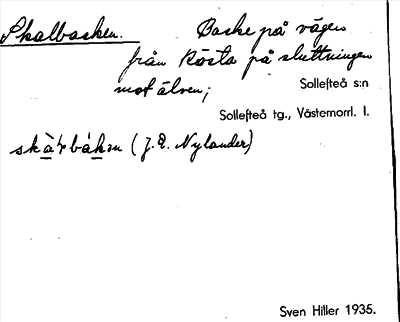 Skalbacken. Backe på vägen
från Rösta på sluttningen
mot älven;
Sollefteå s:n
Sollefteå tg., Västernorrl. l.
(J. E. Nylander)
Sven Hiller 1935.